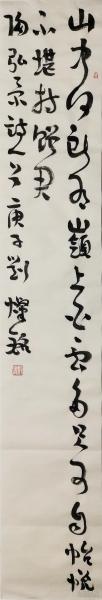 山中何所有嶺上白雲多只可自怡悦
不堪持贈君
陶弘景詩一首庚子劉燦銘